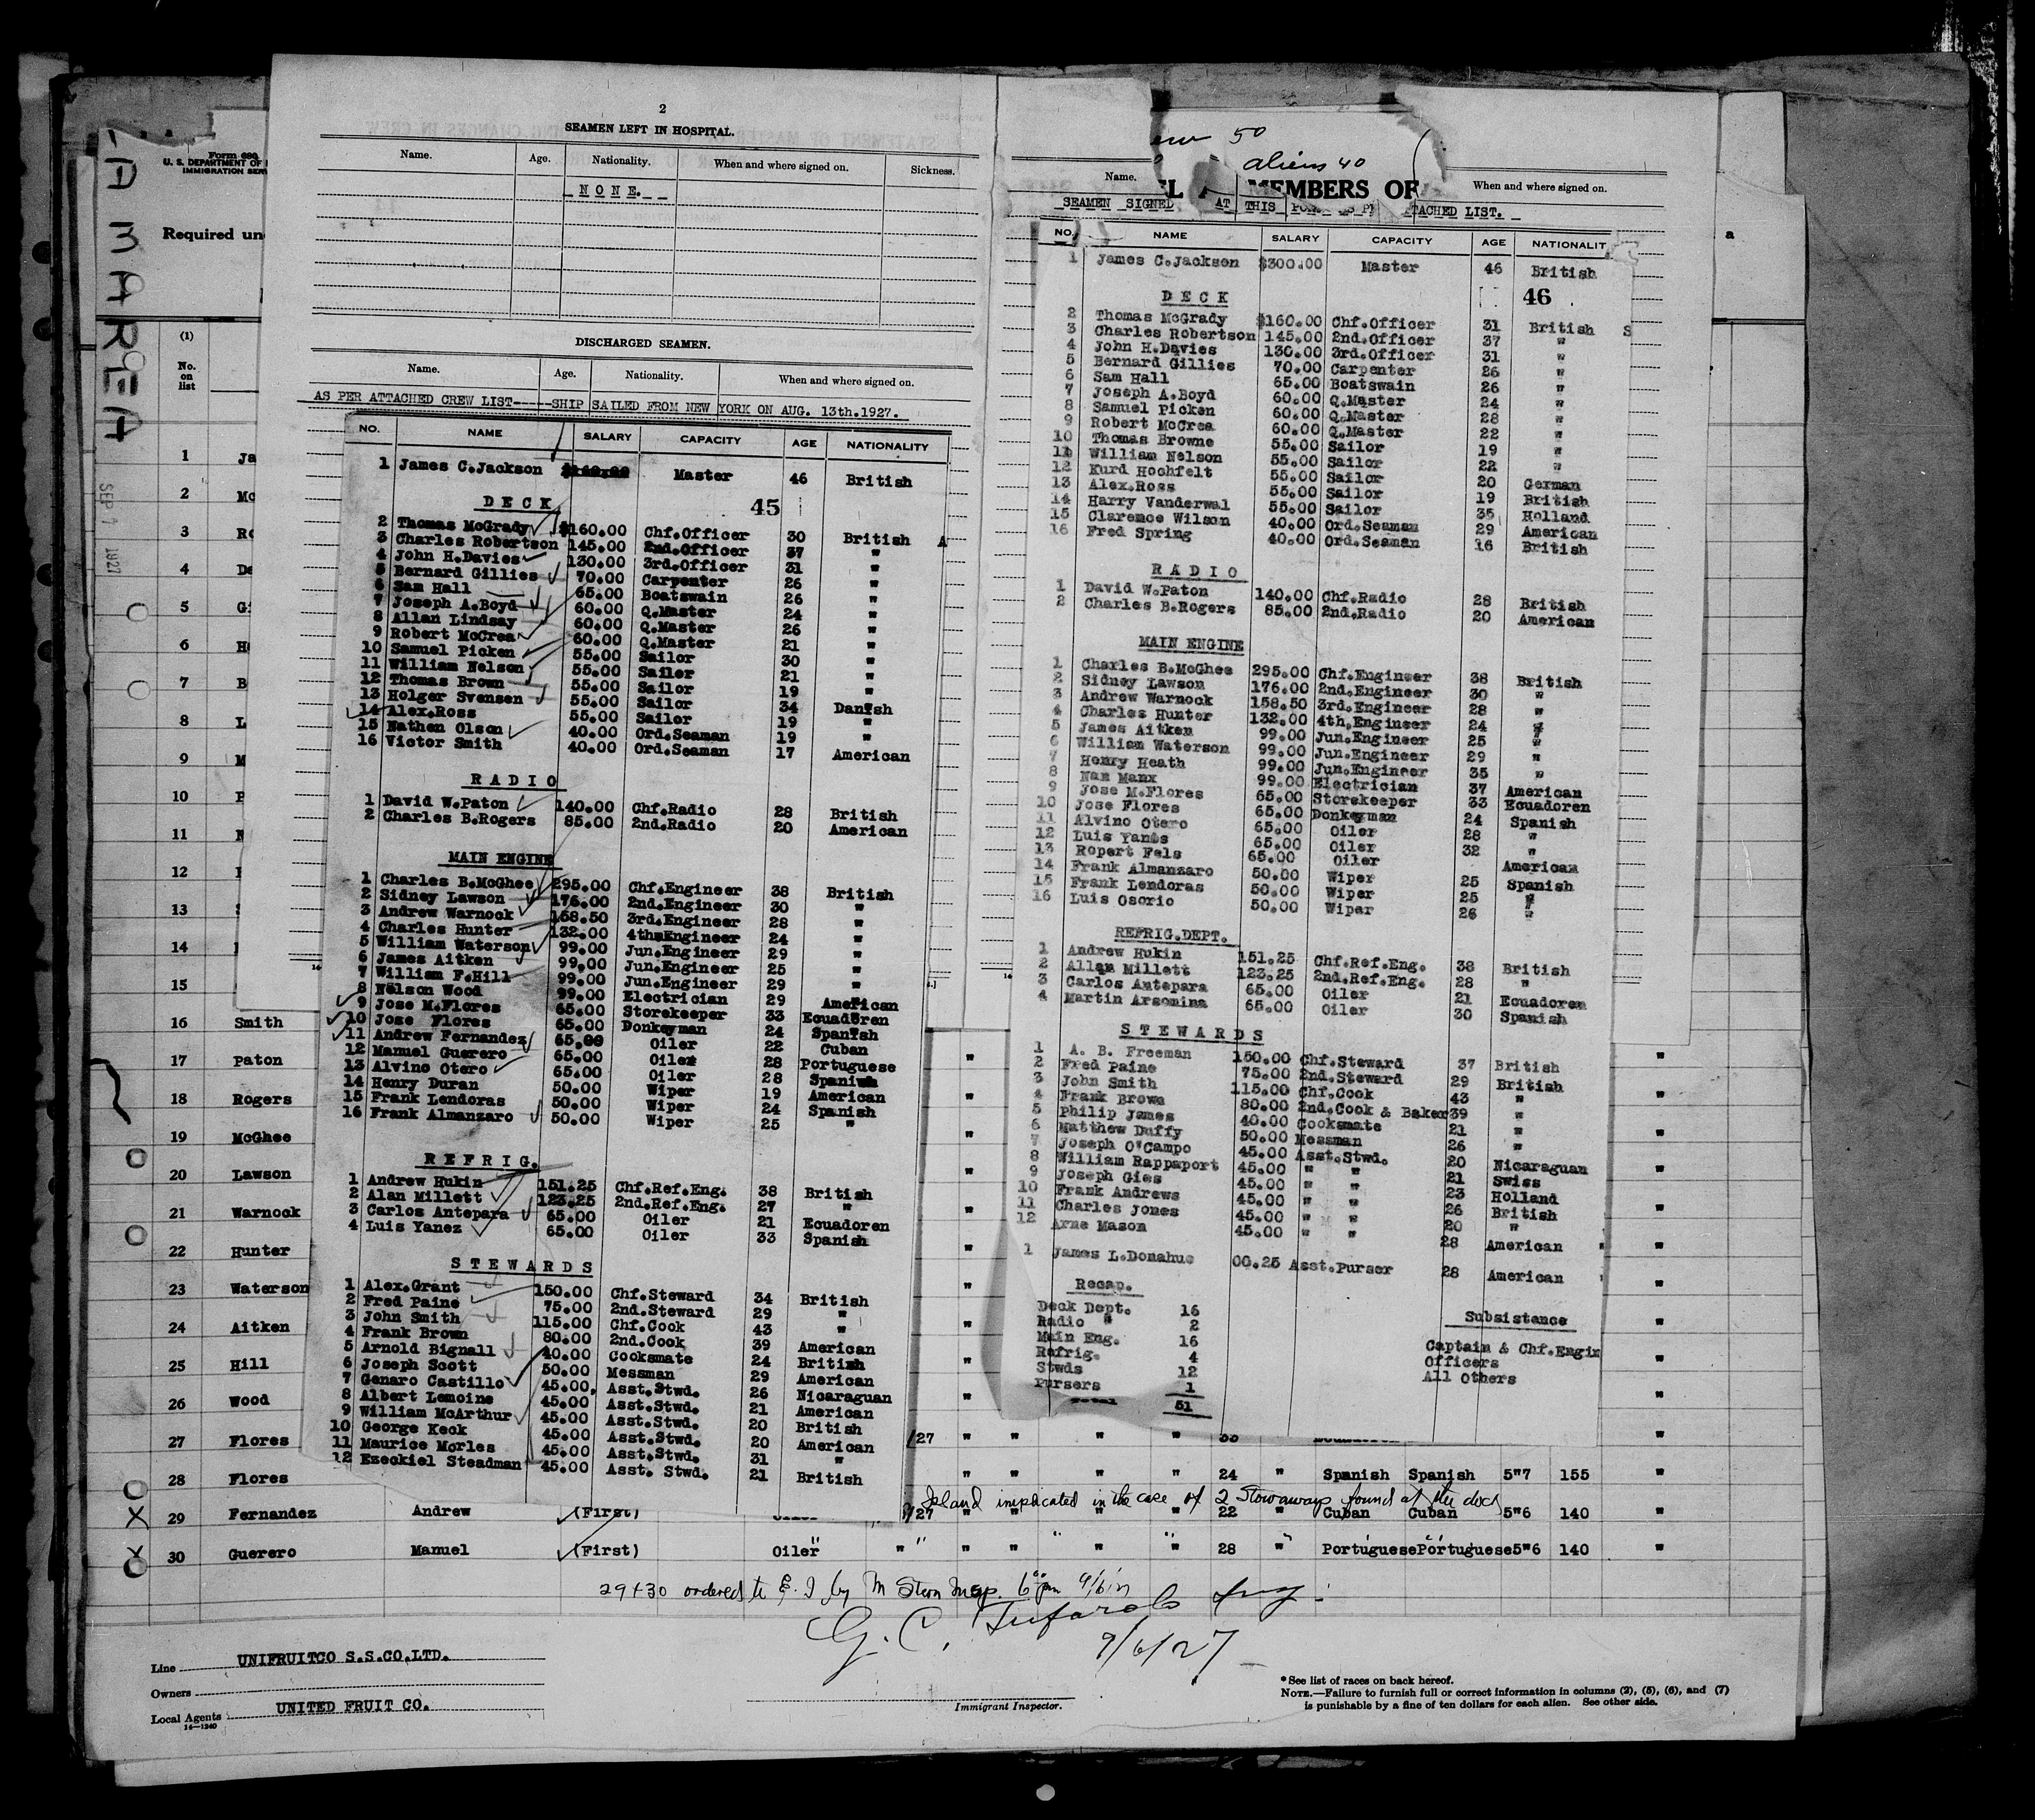 2
SEAMEN LEFT IN HOSPITAL.
Name. Age. Nationality. When and where signed on. Sickness.
NONE.
DISCHARGED SEAMEN.
Name. Age. Nationality. When and where signed on.
AS PER ATTACHED CREW LIST-----SHIP SAILED FROM NEW YORK ON AUG. 13th.1927.
NO. NAME SALARY CAPACITY AGE NATIONALITY
1 James C.Jackson Master 46 British
DECK 45
2 Thomas McGrady $160.00 Chf.Officer 30 British
3 Charles Robertson 145.00 2nd.Officer 37 "
4 John H.Davies 130.00 3rd.Officer 31 "
5 Bernard Gillies 70.00 Carpenter 26 "
6 Sam Hall 65.00 Boatswain 26 "
7 Joseph A.Boyd 60.00 Q.Master 24 "
8 Allan Lindsay 60.00 Q.Master 26 "
9 Robert McCrea 60.00 Q.Master 21 "
10 Samuel Picken 55.00 Sailor 30 "
11 William Nelson 55.00 Sailor 21 "
12 Thomas Brown 55.00 Sailor 19 "
13 Holger Svensen 55.00 Sailor 34 Danish
14 Alex.Ross 55.00 Sailor 19 "
15 Nathen Olson 40.00 Ord.Seaman 19 "
16 Victor Smith 40.00 Ord.Seaman 17 American
RADIO
1 David W.Paton 140.00 Chf.Radio 28 British
2 Charles B.Rogers 85.00 2nd.Radio 20 American
MAIN ENGINE
1 Charles B.McGhee 295.00 Chf.Engineer 38 British
2 Sidney Lawson 176.00 2nd.Engineer 30 "
3 Andrew Warnock 158.50 3rd.Engineer 28 "
4 Charles Hunter 132.00 4thmEngineer 24 "
5 William Waterson 99.00 Jun.Engineer 29 "
6 James Aitken 99.00 Jun.Engineer 25 "
7 William F.Hill 99.00 Jun.Engineer 29 "
8 Nelson Wood 99.00 Electrician 29 American
9 Jose M.Flores 65.00 Storekeeper 33 Ecuadoren
10 Jose Flores 65.00 Donkeyman 24 Spanish
11 Andrew Fernandez 65.00 Oiler 22 Cuban
12 Manuel Guerero 65.00 Oiler 28 Portuguese
13 Alvino Otero 65.00 Oiler 28 Spanish
14 Henry Duran 50.00 Wiper 19 American
15 Frank Lendoras 50.00 Wiper 24 Spanish
16 Frank Almanzaro 50.00 Wiper 25 "
REFRIG.
1 Andrew Hukin 151.25 Chf.Ref.Eng. 38 British
2 Alan Millett 123.25 2nd.Ref.Eng. 27 "
3 Carlos Antepara 65.00 Oiler 21 Ecuadoren
4 Luis Yanez 65.00 Oiler 33 Spanish
STEWARDS
1 Alex.Grant 150.00 Chf.Steward 34 British
2 Fred Paine 75.00 2nd.Steward 29 "
3 John Smith 115.00 Chf.Cook 43 "
4 Frank Brown 80.00 2nd.Cook 39 American
5 Arnold Bignall 40.00 Cooksmate 24 British
6 Joseph Scott 50.00 Messman 29 American
7 Genaro Castillo 45.00 Asst.Stwd. 26 Nicaraguan
8 Albert Lemoine 45.00 Asst.Stwd. 21 American
9 William McArthur 45.00 Asst.Stwd. 20 British
10 George Keck 45.00 Asst.Stwd. 20 American
11 Maurice Morles 45.00 Asst.Stwd. 31 "
12 Ezeckiel Steadman 45.00 Asst. Stwd. 21 British
50
aliens 40
Name. MEMBERS OF When and where signed on.
SEAMEN SIGNED AT THIS TACHED LIST.
NO. NAME SALARY CAPACITY AGE NATIONALIT
1 James C.Jackson $300.00 Master 46 British
DECK 46
2 Thomas McGrady $160.00 Chf.Officer 31 British S
3 Charles Robertson 145.00 2nd.Officer 37 "
4 John H.Davies 130.00 3rd.Officer 31 "
5 Bernard Gillies 70.00 Carpenter 26 "
6 Sam Hall 65.00 Boatswain 26 "
7 Joseph A.Boyd 60.00 Q.Master 24 "
8 Samuel Picken 60.00 Q.Master 28 "
9 Robert McCrea 60.00 Q.Master 22 "
10 Thomas Browne 55.00 Sailor 19 "
11 William Nelson 55.00 Sailor 22 "
12 Kurd Hochfelt 55.00 Sailor 20 German
13 Alex.Ross 55.00 Sailor 19 British
14 Harry Vanderwal 55.00 Sailor 35 Holland
15 Clarence Wilson 40.00 Ord.Seaman 29 American
16 Fred Spring 40.00 Ord.Seaman 16 British
RADIO
1 David W.Paton 140.00 Chf.Radio 28 British
2 Charles B.Rogers 85.00 2nd.Radio 20 American
MAIN ENGINE
1 Charles B.McGhee 295.00 Chf.Engineer 38 British
2 Sidney Lawson 176.00 2nd.Engineer 30 "
3 Andrew Warnock 158.50 3rd.Engineer 28 "
4 Charles Hunter 132.00 4th.Engineer 24 "
5 James Aitken 99.00 Jun.Engineer 25 "
6 William Waterson 99.00 Jun.Engineer 29 "
7 Henry Heath 99.00 Jun.Engineer 35 "
8 Nan Manx 99.00 Electrician 37 American
9 Jose M.Flores 65.00 Storekeeper 33 Ecuadoren
10 Jose Flores 65.00 Donkeyman 24 Spanish
11 Alvino Otero 65.00 Oiler 28 "
12 Luis Yanes 65.00 Oiler 32 "
13 Ropert Fels 65.00 Oiler American
14 Frank Almanzaro 50.00 Wiper 25 Spanish
15 Frank Lendoras 50.00 Wiper 25 "
16 Luis Osorio 50.00 Wiper 26 "
REFRIG.DEPT.
1 Andrew Hukin 151.25 Chf.Ref.Eng. 38 British
2 Allan Millett 123.25 2nd.Ref.Eng. 28 "
3 Carlos Antepara 65.00 Oiler 21 Ecuadoren
4 Martin Arsomina 65.00 Oiler 30 Spanish
STEWARDS
1 A. B. Freeman 150.00 Chf.Steward 37 British
2 Fred Paine 75.00 2nd.Steward 29 British
3 John Smith 115.00 Chf.Cook 43 "
4 Frank Brown 80.00 2nd.Cook & Baker 39 "
5 Philip James 40.00 Cooksmate 21 "
6 Matthew Duffy 50.00 Messman 26 "
7 Joseph O'Campo 45.00 Asst.Stwd. 20 Nicaraguan
8 William Rappaport 45.00 " " 21 Swiss
9 Joseph Gies 45.00 " " 23 Holland
10 Frank Andrews 45.00 " " 26 British
11 Charles Jones 45.00 " " 20 "
12 Arne Mason 45.00 " " 28 American
1 James L.Donahue 00.25 Asst.Purser 28 American
Recap.
Deck Dept. 16
Radio " 2
Main Eng. 16
Refrig. 4
Stwds 12
Pursers 1
Total 51
Subsistance
Captain & Chf.Engin
Officers
All Others
LA MAREA
SEP 7 1927
Form 680
U. S. DEPARTMENT OF
IMMIGRATION SER
Required un
(1)
No. on list
1 Ja
2 Mc
3 Ro
4 Da
5 Gi
6 H
7 B
8 L
9 M
10 P
11
12
13
14
15
16 Smith
17 Paton "
18 Rogers "
19 McGhee "
20 Lawson "
21 Warnock "
22 Hunter "
23 Waterson "
24 Aitken "
25 Hill "
26 Wood "
27 Flores /27 " " " " 33 "
28 Flores " " " " 24 " Spanish Spanish 5"7 155 "
Island implicated in the case of 2 Stowaways found at the dock
29 Fernandez Andrew (First) Oiler /27 " " " " 22 " Cuban Cuban 5"6 140 "
30 Guerero Manuel (First) Oiler " " " " " " 28 " Portuguese Portuguese 5"6 140 "
29+30 ordered to E.I by M Stern Insp.
9/6/27
Line UNIFRUITCO S.S.CO.LTD.
Owners
Local Agents UNITED FRUIT CO.
14-1240
Immigrant Inspector.
*See list of races on back hereof.
NOTE.—Failure to furnish full or correct information in columns (2), (5), (6), and (7)
is punishable by a fine of ten dollars for each alien. See other side.